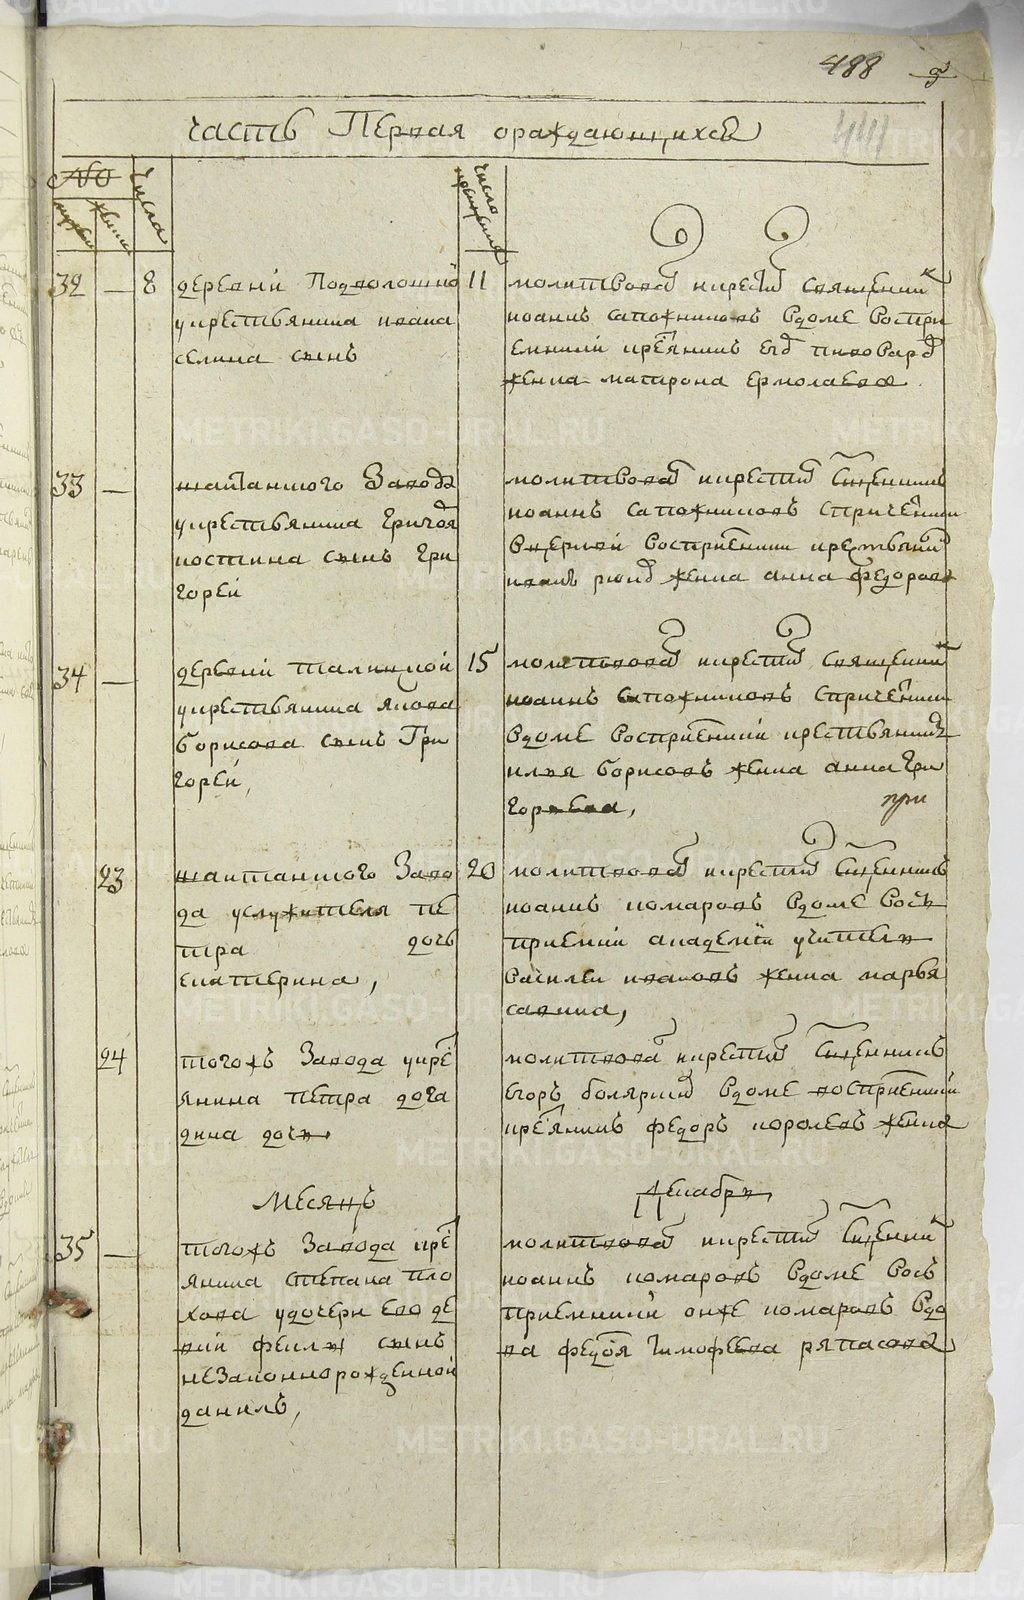 488
441
METRIKI.GASO-URAL.RU
часть Первая ораждающихся
№
числа
мужеска
женска
число крещения
32 — 8 деревни Подволошно
укрестьянина ивана
селина сынъ
11 молитвовал икрестил священник
иоаннъ сапожниковъ вдоме воспри
емники крестьянинъ
жена матрона ермолаева
33 — шайтанского Завода
укрестьянина григория
костина сынъ гри
горей
молитвовал икрестил священникъ
иоаннъ сапожниковъ спричетники
вцеркви восприемники крестьянин
иванъ жена анна федорова
34 — деревни талицкой
укрестьянина якова
борисова сынъ Гри
горей,
15 молитвовал икрестил священник
иоаннъ сапожниковъ спричетники
вдоме восприемники крестьянинъ
илья борисовъ жена анна гри
горьева,
при
23 шаитанского Заво
да служителя пе
тра дочь
екатерина,
20 молитвовал икрестил священникъ
иоаннъ комаровъ вдоме вось
приемники академии учитель
василеи ивановъ жена марья
савина,
24 тогожъ Завода укре
янина петра
дочь
молитвовал икрестил священникъ
егоръ боляркий вдоме восприемники
крестьянинъ федоръ королевъ жена
Месяцъ Декабрь
35 — тогожъ Завода кре
янина степана пло
хова удочери ево де
вки феклы сынъ
незаконнорожденной
данилъ,
молитвовал икрестил священник
иоаннъ комаровъ вдоме вось
приемники онже комаровъ вдо
ва федося тимофеева